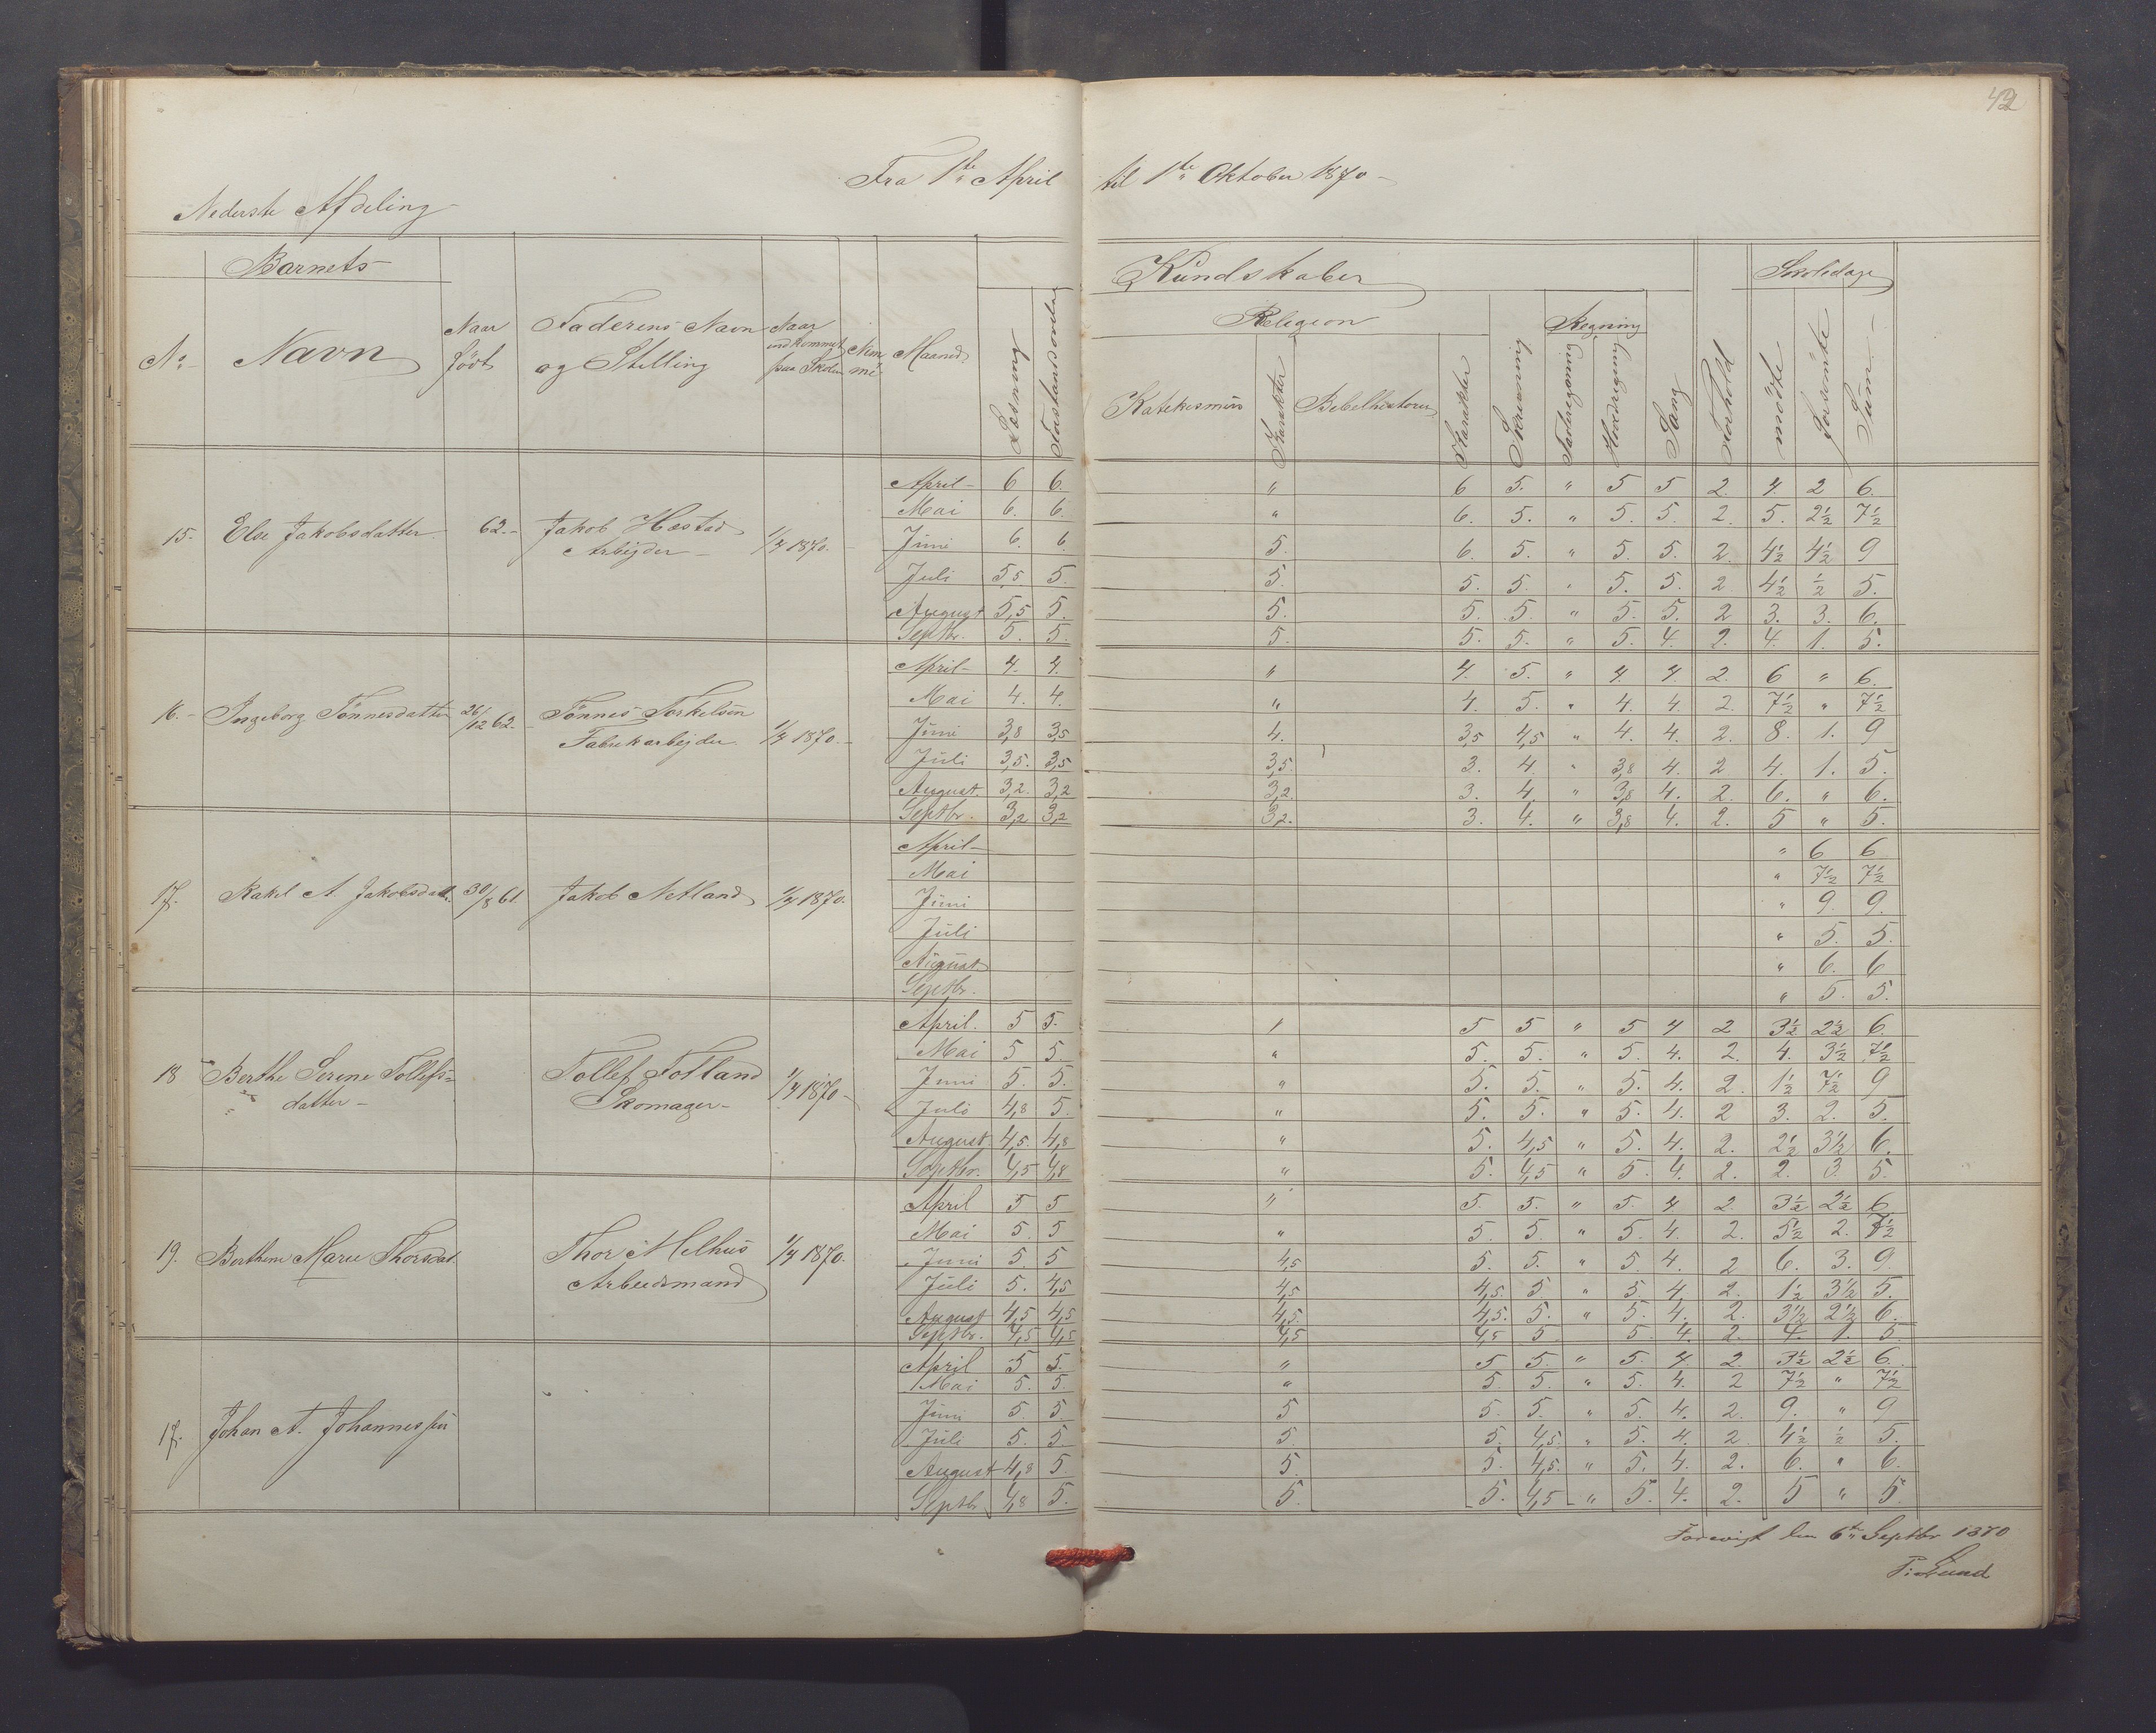 42
Fra 1ste April til 1ste Oktober 1870 -
Nederste Afdeling
Barnets
Kundskaber
Skoledage
Religion
Regning
No - Navn Naar födt Faderens Navn og Stilling Naar indkommet paa Skolen Maaned Læsning Forstandsövelse Katekismus Karakter Bibelhistorie Karakter Skrivning Tavleregning Hovedregning Sang Forhold mödte forsömte Sum
15. Else Jakobsdatter 62. - Jakob Hæstad Arbeider - 1/4 1870.
April - 6 6. " 6 5. " 5 5 2. 4. 2 6.
Mai 6. 6. " 6. 5. " 5. 5. 2. 5. 2½ 7½
Juni 6. 6. 5. 6. 5. " 5. 5. 2. 4½ 4½ 9
Juli 5,5 5. 5. 5. 5. " 5. 5. 2 4½ ½ 5.
August 5,5 5. 5. 5. 5. " 5. 5. 2 3. 3. 6.
Septbr. 5. 5. 5. 5. 5. " 5. 4. 2. 4. 1. 5.
16. - Ingeborg Tönnesdatter 26/12 62. Tönnes Torkelsen Fabrikarbejder. 1/4 1870. -
April - 4. 4. " 4. 5. " 4 4 2. 6 " 6.
Mai 4. 4. " 4. 5. " 4. 4. 2. 7½ " 7½
Juni 3,8 3,5 4. 3,5 4,5 " 4. 4. 2. 8. 1. 9
Juli 3,5. 3,5 3,5. 3. 4. " 3,8 4. 2 4. 1. 5.
August. 3,2. 3,2 3,2. 3. 4 " 3,8 4. 2. 6. " 6.
Septbr. 3,2 3,2 3,2. 3. 4. " 3,8 4. 2. 5 " 5.
17. Rakel A. Jakobsdatt. 30/8 61. Jakob Netland 1/4 1870.
April - " 6 6
Mai " 7½ 7½
Juni " 9. 9.
Juli " 5. 5.
August " 6. 6
Septbr. " 5. 5.
18 Berthe Serine Tollefs= datter - Tollef Totland Skomager - 1/4 1870 -
April. 5 5. " 5 5 " 5 4 2 3½ 2½ 6.
Mai 5 5. " 5. 5. " 5. 4. 2. 4. 3½ 7½
Juni 5. 5. " 5. 5. " 5. 4. 2. 1½ 7½ 9
Juli 4,8 5. " 5. 5. " 5. 4. 2 3. 2. 5.
August. 4,5. 4,8 " 5. 4,5 " 5. 4. 2. 2½ 3½ 6.
Septbr. 4,5 4,8 " 5. 4,5 " 5. 4. 2. 2. 3. 5.
19. Berthine Marie Thorsdat. Thor Melhus Arbeidsmand 1/4 1870.
April 5 5 " 5. 5. " 5. 4 2. 3½ 2½ 6
Mai 5. 5 " 5. 5. " 5. 4. 2. 5½ 2. 7½
Juni 5. 5 4,5 5. 5. " 5. 4. 2 6. 3. 9.
Juli 5. 4,5 4,5 4,5. 5 " 5. 4. 2. 1½ 3½ 5.
August 4,5 4,5 4,5. 4,5. 5. " 5. 4. 2. 3½ 2½ 6.
Septbr. 4,5 4,5 4,5 4,5 5 5. 4. 2. 4. 1. 5.
17. Johan A. Johannessen
April 5 5. " 5 5. " 5. 4. 2. 3½ 2½ 6.
Mai 5. 5. " 5. 5. " 5. 4. 2 7½ " 7½
Juni 5. 5 5 5. 5. " 5. 4. 2. 9. " 9
Juli 5. 5 5. 5. 4,5. " 5. 4. 2 4½ ½ 5.
August 4,8 5. 5. 5. 4,5. " 5. 4. 2. 6. " 6.
Septbr. 4,8 5. 5. 5. 4,5 " 5. 4. 2. 5 " 5.
Forevist den 6te Septbr 1870
P: Lund